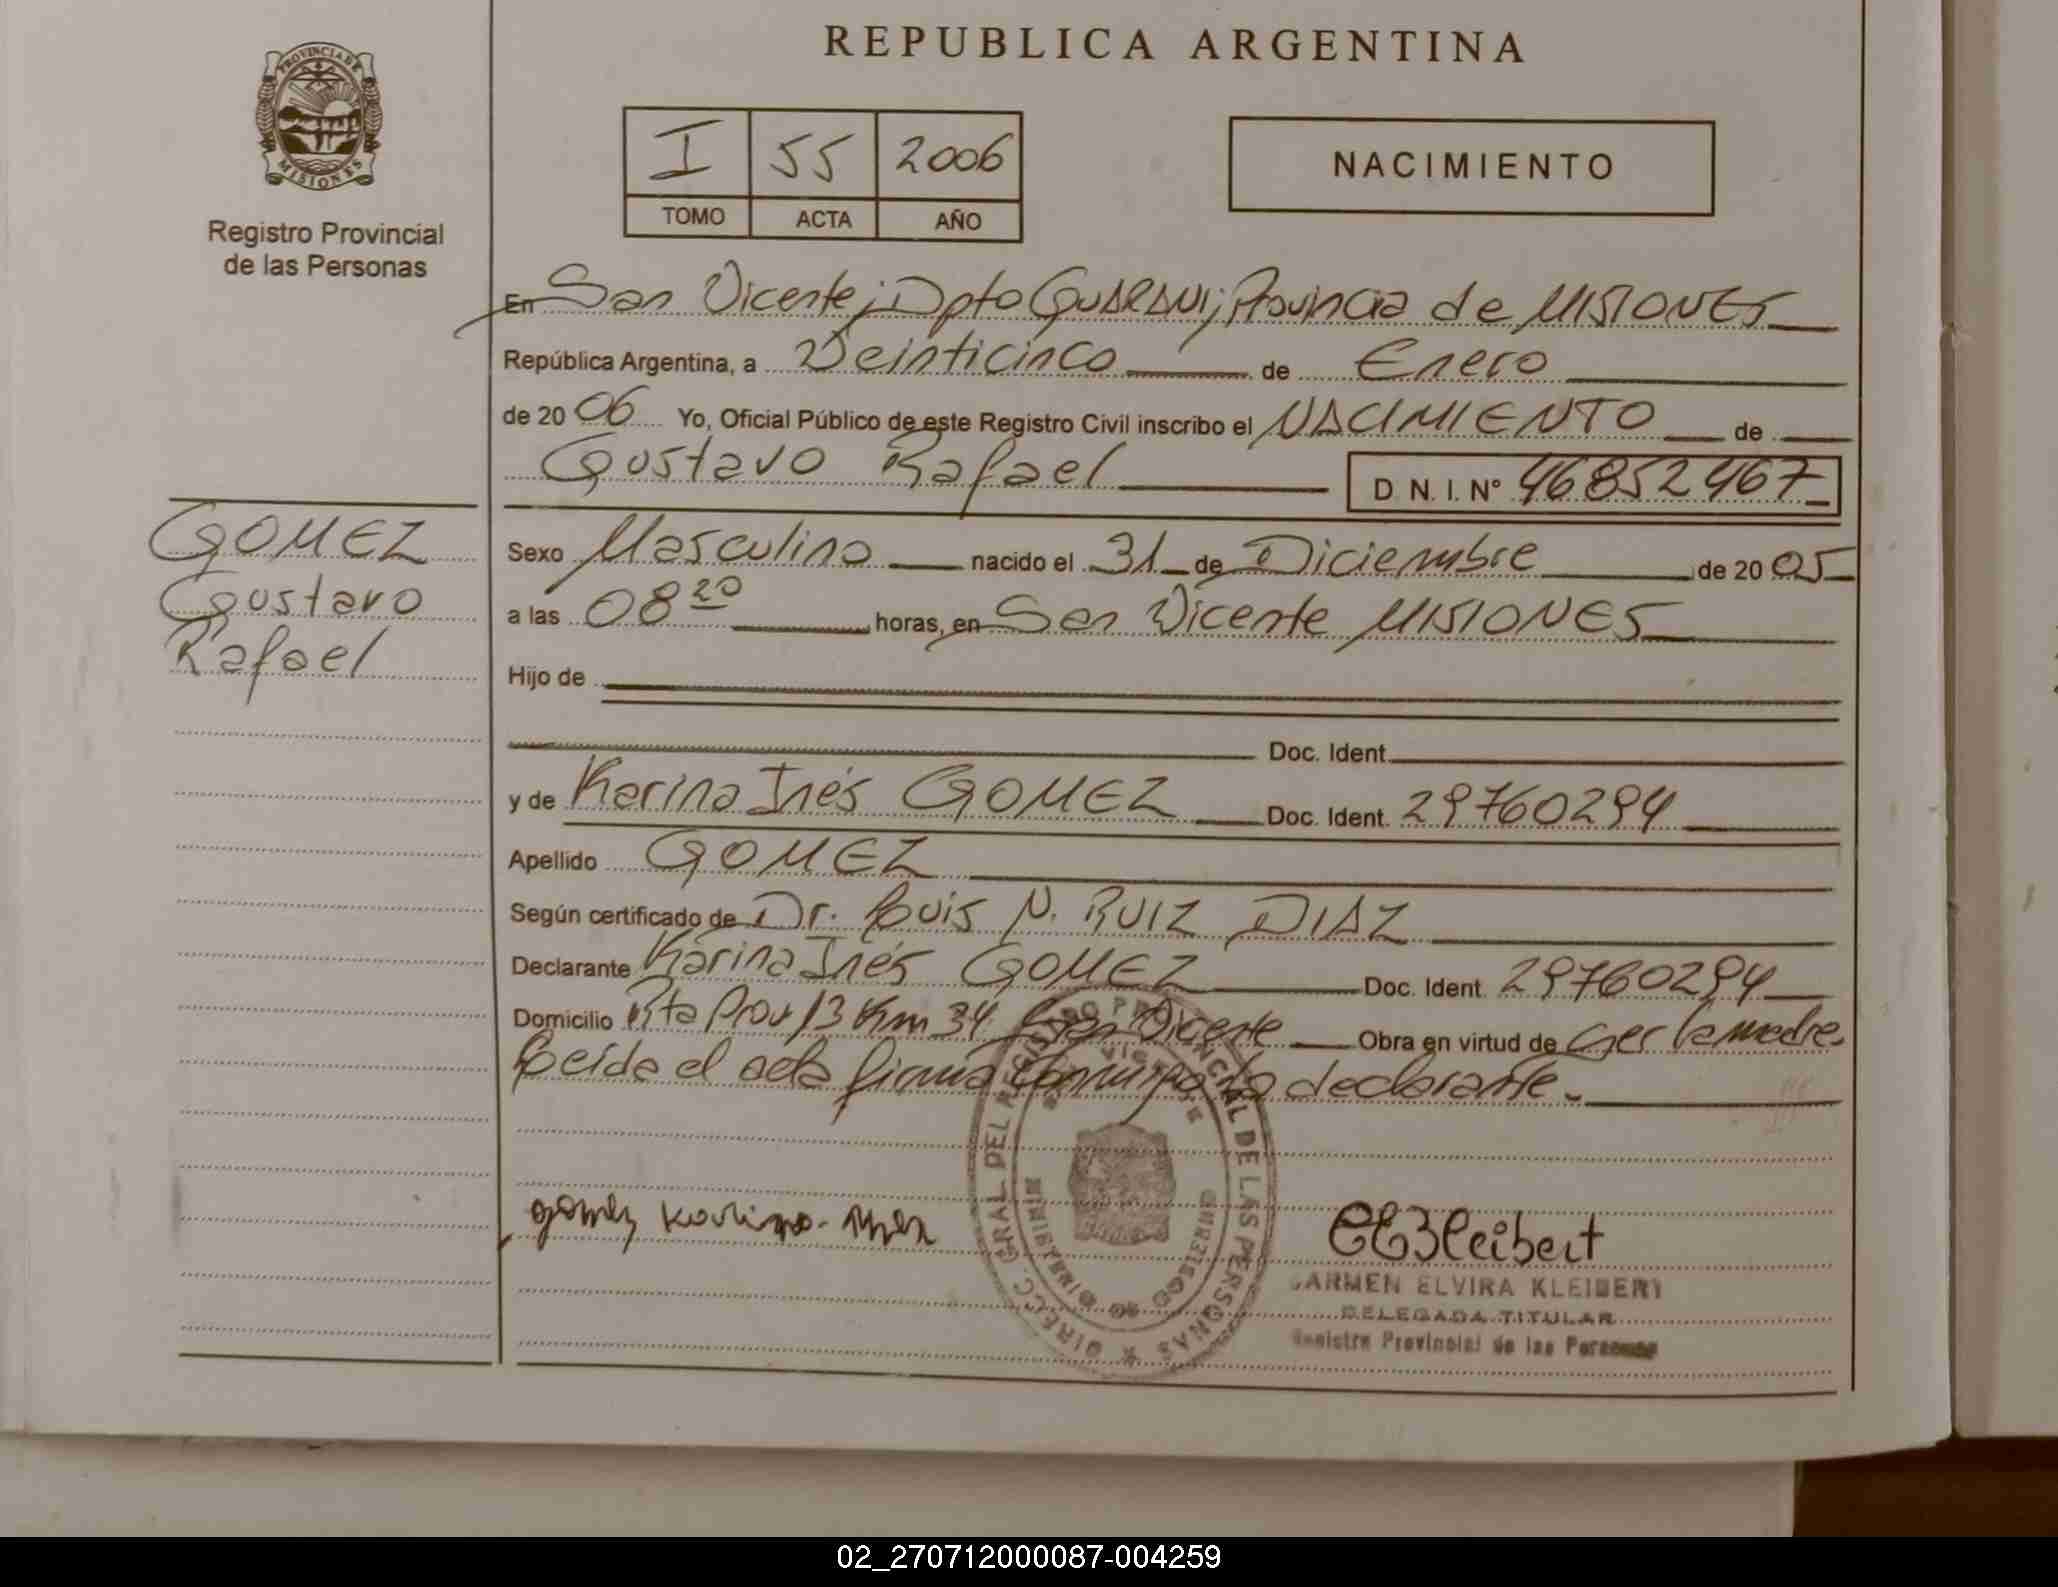 REPUBLICA ARGENTINA
PROVINCIA DE
MISIONES
Registro Provincial
de las Personas
I 55 2006
TOMO ACTA AÑO
NACIMIENTO
En San Vicente; Dpto GUARANI; Provincia de MISIONES
República Argentina, a Veinticinco de Enero
de 20 06 Yo, Oficial Público de este Registro Civil inscribo el NACIMIENTO de
Gustavo Rafael D N. I. N° 46852467
GOMEZ
Gustavo
Rafael
Sexo Masculino nacido el 31 de Diciembre de 20 05
a las 08 20 horas, en San Vicente MISIONES
Hijo de
Doc. Ident.
y de Karina Inés GOMEZ Doc. Ident. 29760294
Apellido GOMEZ
Según certificado de Dr. Luis N. RUIZ DIAZ
Declarante Karina Inés GOMEZ Doc. Ident 29760294
Domicilio Rta Prov 13 Km 34 San Vicente Obra en virtud de ser la madre.
Leída el acta firma conmigo la declarante.
DIRECC. GRAL DEL REGISTRO PROVINCIAL DE LAS PERSONAS
gomez Karina
CEKleibert
CARMEN ELVIRA KLEIBERT
DELEGADA TITULAR
Registro Provincial de las Personas
02_270712000087-004259